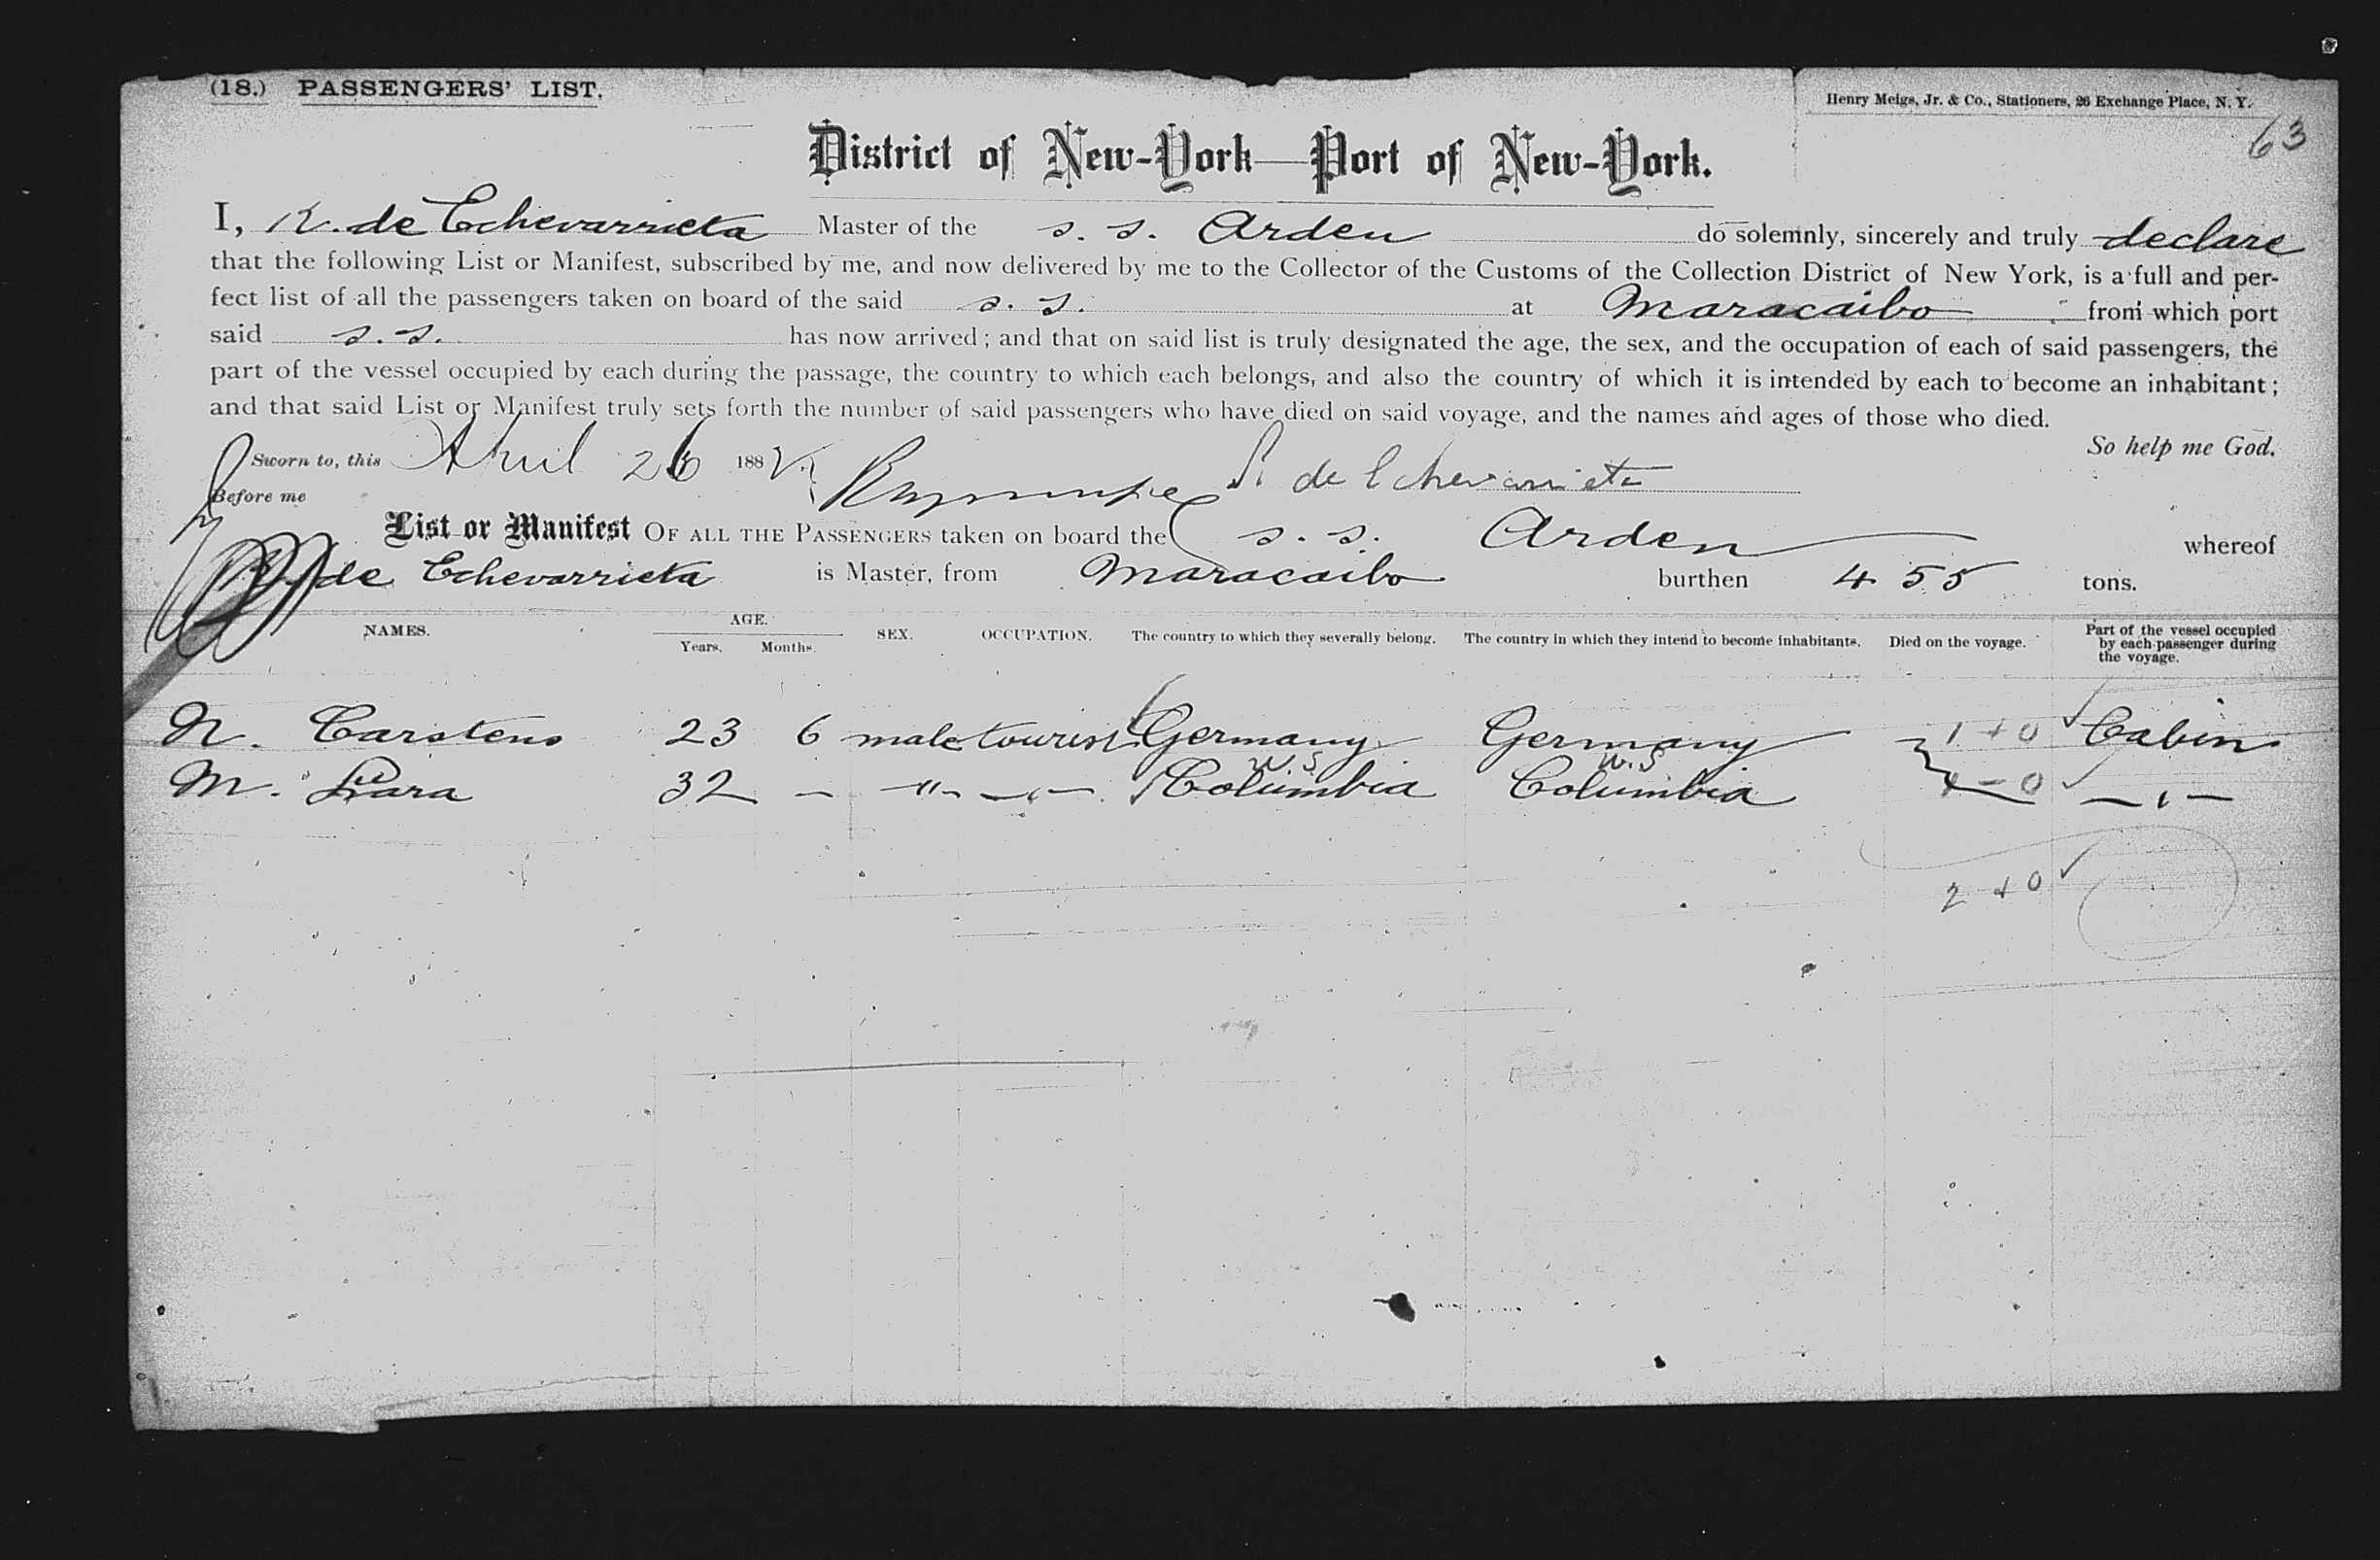 (18.) PASSENGERS' LIST.
Henry Meigs, Jr. & Co., Stationers, 26 Exchange Place, N. Y.
63
District of New-York—Port of New-York.
I, R. de Echevarrieta Master of the s. s. Arden do solemnly, sincerely and truly declare
that the following List or Manifest, subscribed by me, and now delivered by me to the Collector of the Customs of the Collection District of New York, is a full and per-
fect list of all the passengers taken on board of the said s. s. at Maracaibo from which port
said s. s. has now arrived; and that on said list is truly designated the age, the sex, and the occupation of each of said passengers, the
part of the vessel occupied by each during the passage, the country to which each belongs, and also the country of which it is intended by each to become an inhabitant;
and that said List or Manifest truly sets forth the number of said passengers who have died on said voyage, and the names and ages of those who died.
So help me God.
Sworn to, this April 26 188
Before me de Echevarrieta
List or Manifest OF ALL THE PASSENGERS taken on board the s. s. Arden whereof
de Echevarrieta is Master, from Maracaibo burthen 455 tons.
NAMES. AGE. Years. Months. SEX. OCCUPATION. The country to which they severally belong. The country in which they intend to become inhabitants. Died on the voyage. Part of the vessel occupied by each passenger during the voyage.
N. Carstens 23 6 male tourist Germany Germany 1 + 0 Cabin
U.S U.S
M. Lara 32 — " — " — Columbia Columbia - 0 — " —
2 + 0